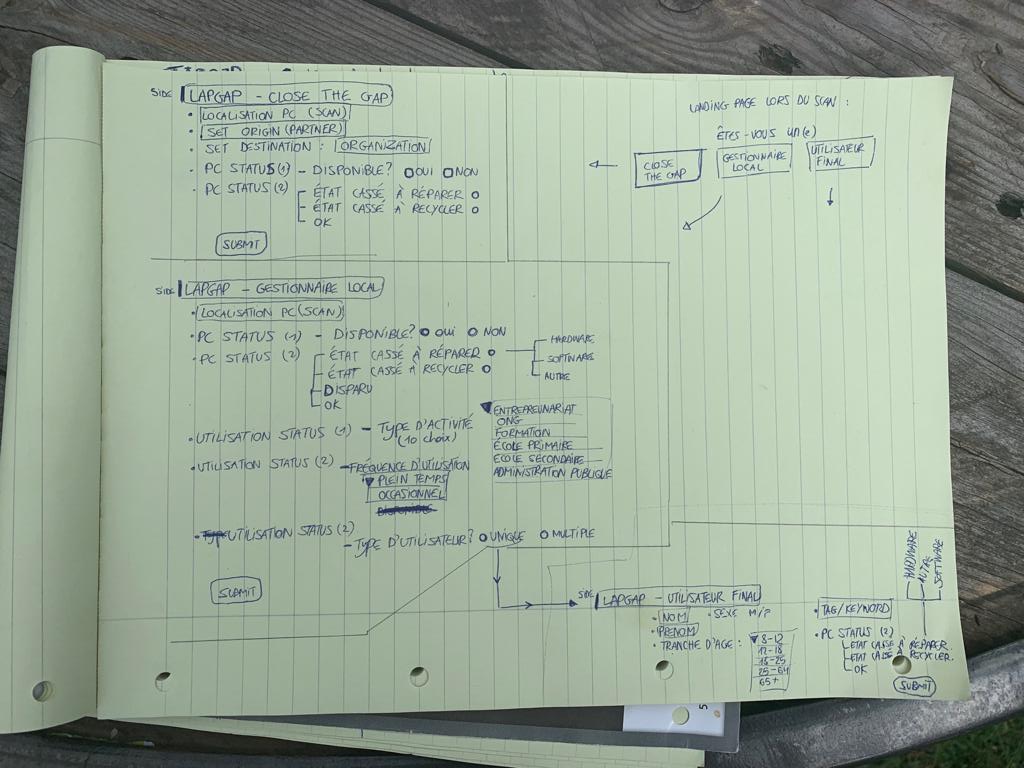 SIDE LAPGAP - CLOSE THE GAP
• LOCALISATION PC (SCAN)
• SET ORIGIN (PARTNER)
• SET DESTINATION : ORGANIZATION
• PC STATUS (1) - DISPONIBLE? OUI NON
• PC STATUS (2) ÉTAT CASSÉ À RÉPARER
ÉTAT CASSÉ À RECYCLER
OK
SUBMIT
LANDING PAGE LORS DU SCAN :
ÊTES-VOUS UN(E)
CLOSE THE GAP
GESTIONNAIRE LOCAL
UTILISATEUR FINAL
SIDE LAPGAP - GESTIONNAIRE LOCAL
• LOCALISATION PC (SCAN)
• PC STATUS (1) - DISPONIBLE? OUI NON
• PC STATUS (2) ÉTAT CASSÉ À RÉPARER
ÉTAT CASSÉ À RECYCLER
DISPARU
OK
HARDWARE
SOFTWARE
AUTRE
• UTILISATION STATUS (1) - TYPE D'ACTIVITÉ
(10 choix)
ENTREPREUNARIAT
ONG
FORMATION
ÉCOLE PRIMAIRE
ECOLE SECONDAIRE
ADMINISTRATION PUBLIQUE
• UTILISATION STATUS (2) - FRÉQUENCE D'UTILISATION
PLEIN TEMPS
OCCASIONNEL
DISPONIBLE
• TYP UTILISATION STATUS (2)
- TYPE D'UTILISATEUR? UNIQUE MULTIPLE
SUBMIT
SIDE LAPGAP - UTILISATEUR FINAL
• NOM • SEXE M/F
• PRENOM
• TRANCHE D'AGE : 8-12
12-18
18-25
25-64
65+
• TAG/KEYWORD
• PC STATUS (2)
ETAT CASSÉ À RÉPARER
ETAT CASSÉ À RECYCLER
OK
HARDWARE
AUTRE
SOFTWARE
SUBMIT
5